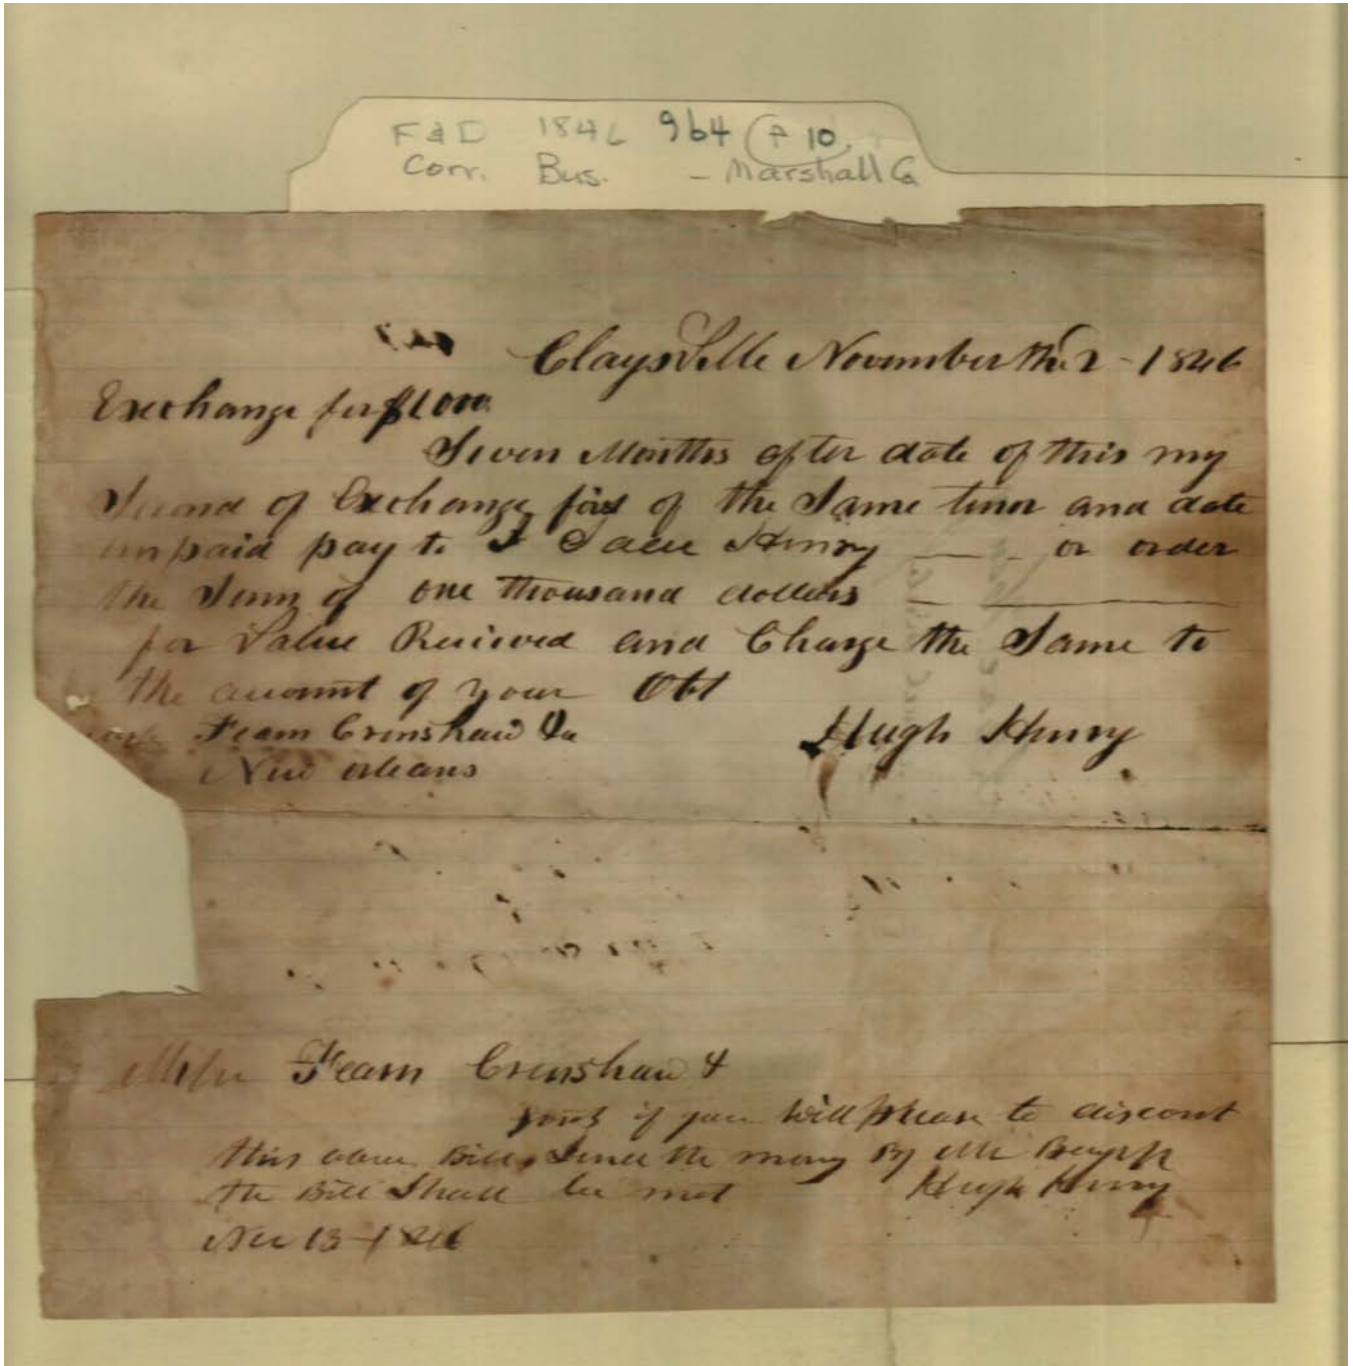 F & D 1846 964 P 10
Corr. Bus. - Marshall Co
Claysville November the 2 - 1846
Exchange for $1000
Seven Months after date of this my
Second of Exchange first of the Same tenor and date
unpaid pay to Henry — or order
the Sum of one thousand dollars —
for Value Recieved and Charge the Same to
the account of your Obt
Fearn Crenshaw & Co Hugh Henry
New orleans
Fearn Crenshaw &
if you will please to discount
this above Bill Send the money By Mr
the Bill Shall be met Hugh Henry
Nov 13 - 1846